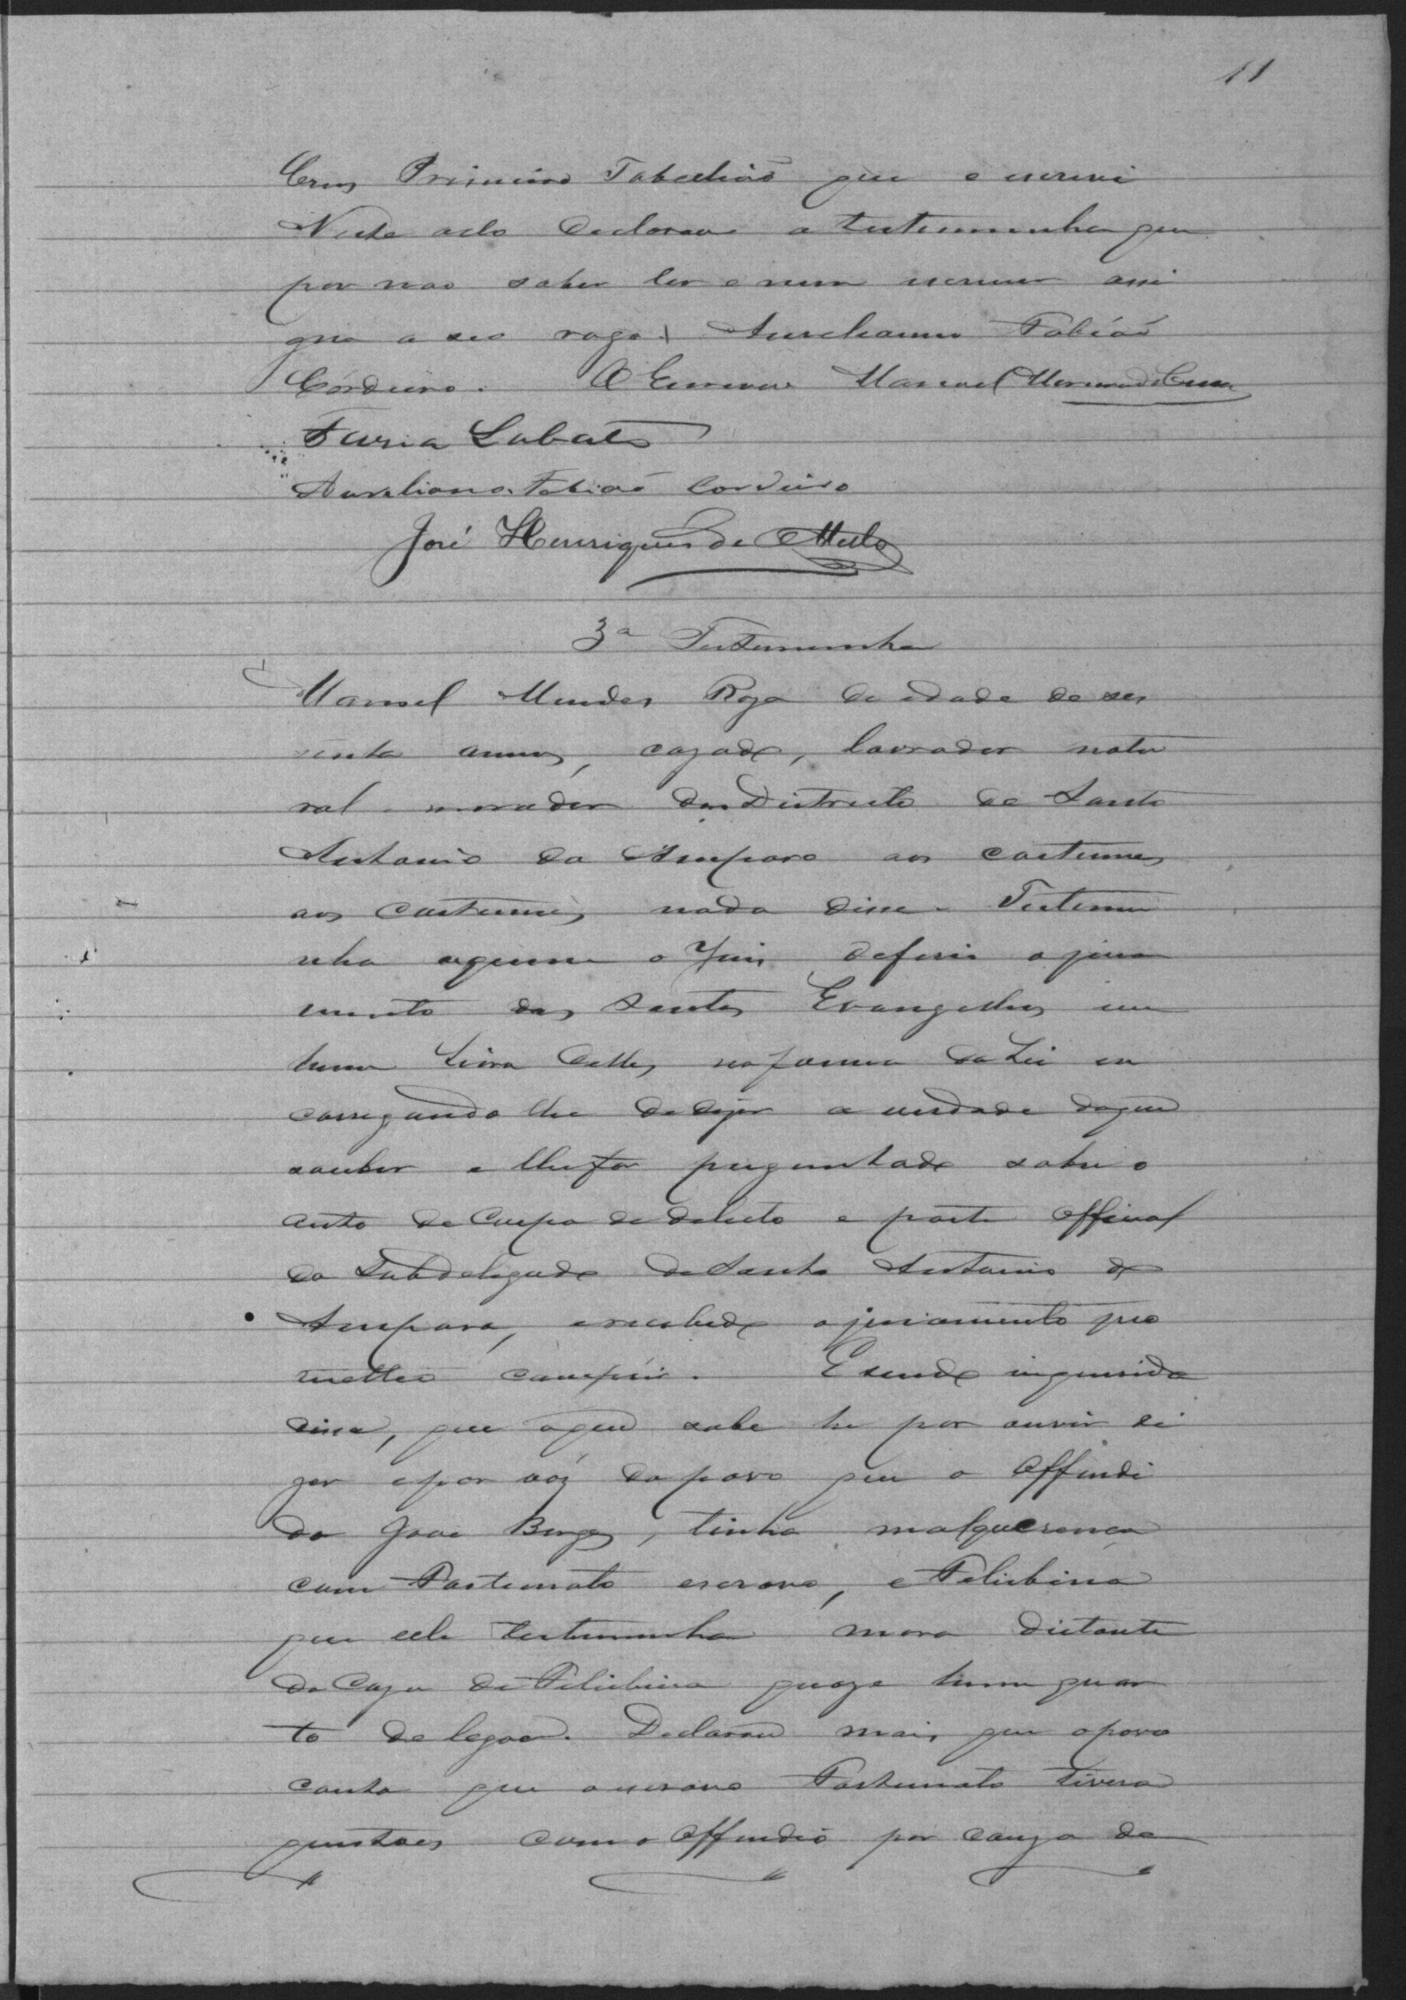 11
Cruz Primeiro Tabelião que o escrevi
Neste acto declarou a testemunha que
por nao saber ler e nem escrever assi
gna a seo rogo Aureliano Fabião
Cordeiro. O Escrivão Manoel
Faria Lobato
Aureliano Fabião Cordeiro
José Henriques de Mello
3ª Testemunha
Manoel Mendes Roza de idade de ses
senta annos, cazado, lavrador natu
ral morador do Districto de Santo
Antonio do Amparo aos costumes
aos costumes nada disse. Testemu
nha aquem o Juis deferio o jura
mento dos Santos Evangelhos em
hum livro delles na forma da Lei en
carregando lhe de dizer a verdade doque
souber e lhe for perguntado sobre o
auto de Corpo de delicto e parte official
do Subdelegado de Santo Antonio do
Amparo, e recebido o juramento pro
metteo cumprir. E sendo inquirida
disse, que oque sabe he por ouvir di
zer e por vóz do povo que o Offendi
do João Borges, tinha malquerença
com Fortunato escravo, e Felisbina
que elle testemunha mora distante
da Caza de Felisbina quaze hum quar
to de legoa. Declarou mais que o povo
conta que o escravo Fortunato tivera
questões com o Offendido por cauza de